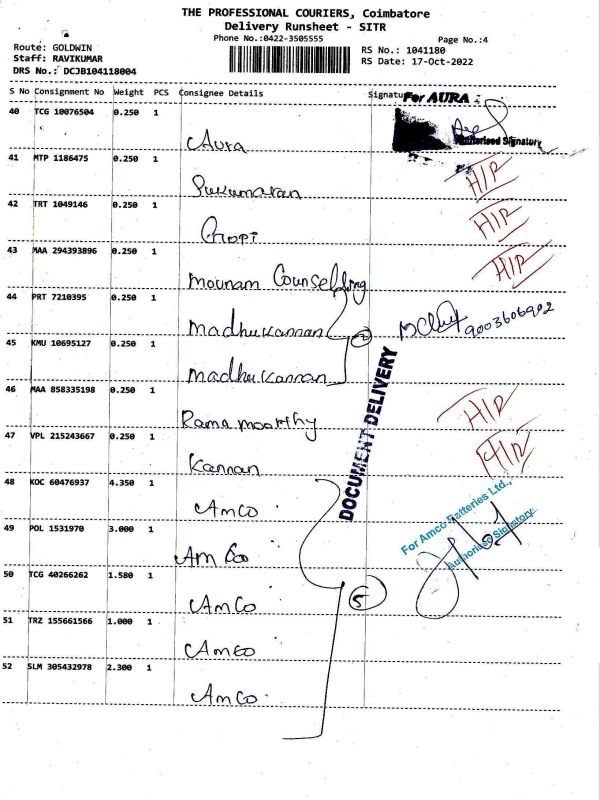 THE PROFESSIONAL COURIERS, Coimbatore
Delivery Runsheet - SITR
Phone No.:0422-3505555
Page No.:4
Route: GOLDWIN
RS No.: 1041180
Staff: RAVIKUMAR
RS Date: 17-Oct-2022
DRS No.: DCJB104118004
S No Consignment No Weight PCS Consignee Details Signature
For AURA
40 TCG 10076504 0.250 1
Authorised Signatory
Aura
41 MTP 1186475 0.250 1
H/R
Sukumaran
42 TRT 1049146 0.250 1
H/R
Gopi
43 MAA 294393896 0.250 1
H/R
Mounam Counselling
44 PRT 7210395 0.250 1
Madhukannan
2
9003606902
45 KMU 10695127 0.250 1
Madhukannan
DOCUMENT DELIVERY
46 MAA 858335198 0.250 1
H/R
Rama moorthy
47 VPL 215243667 0.250 1
H/R
Kannan
48 KOC 60476937 4.350 1
AMCO
For Amco Batteries Ltd.,
Authorised Signatory
49 POL 1531970 3.000 1
Am Co
50 TCG 40266262 1.580 1
AMCO
5
51 TRZ 155661566 1.000 1
AMCO
52 SLM 305432978 2.300 1
AMCO